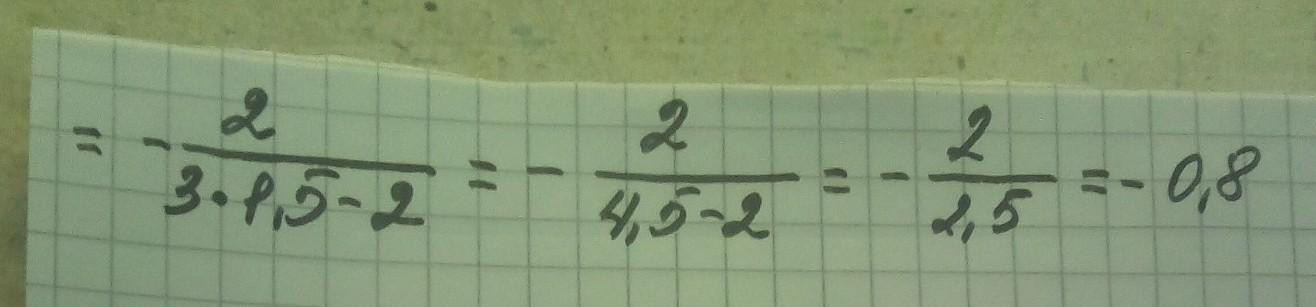 = - 2/(3·1,5-2) = - 2/(4,5-2) = - 2/2,5 = - 0,8